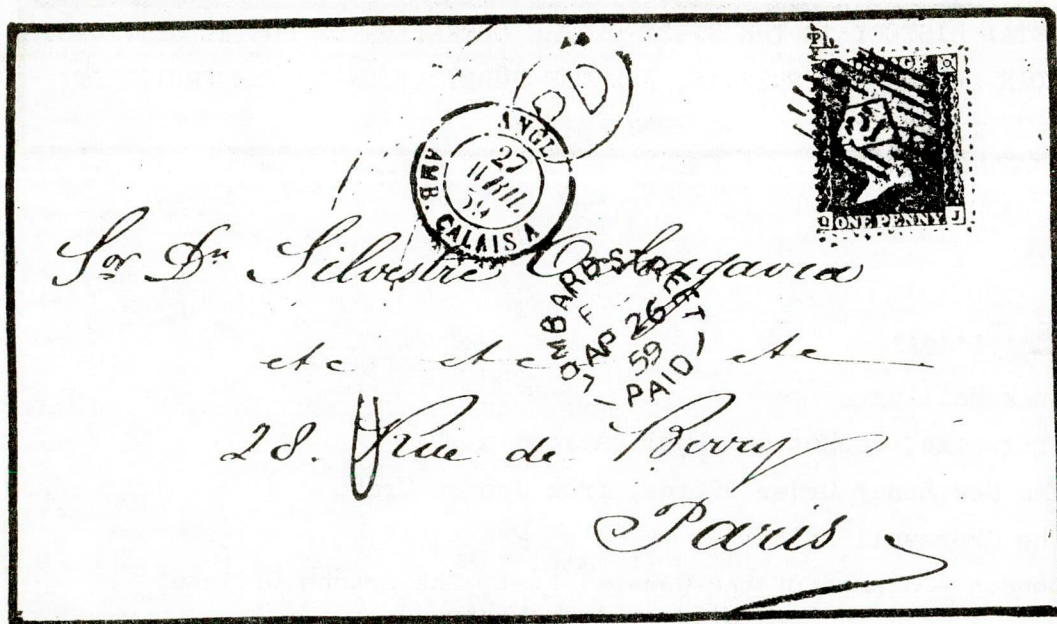 PD
ANGL.
27
AVRIL
59
AMB. CALAIS A
ONE PENNY J
Sor Dn Silvestre
LOMBARD STREET
F
AP 26
59
PAID
etc etc etc
28. Rue de Berry
Paris